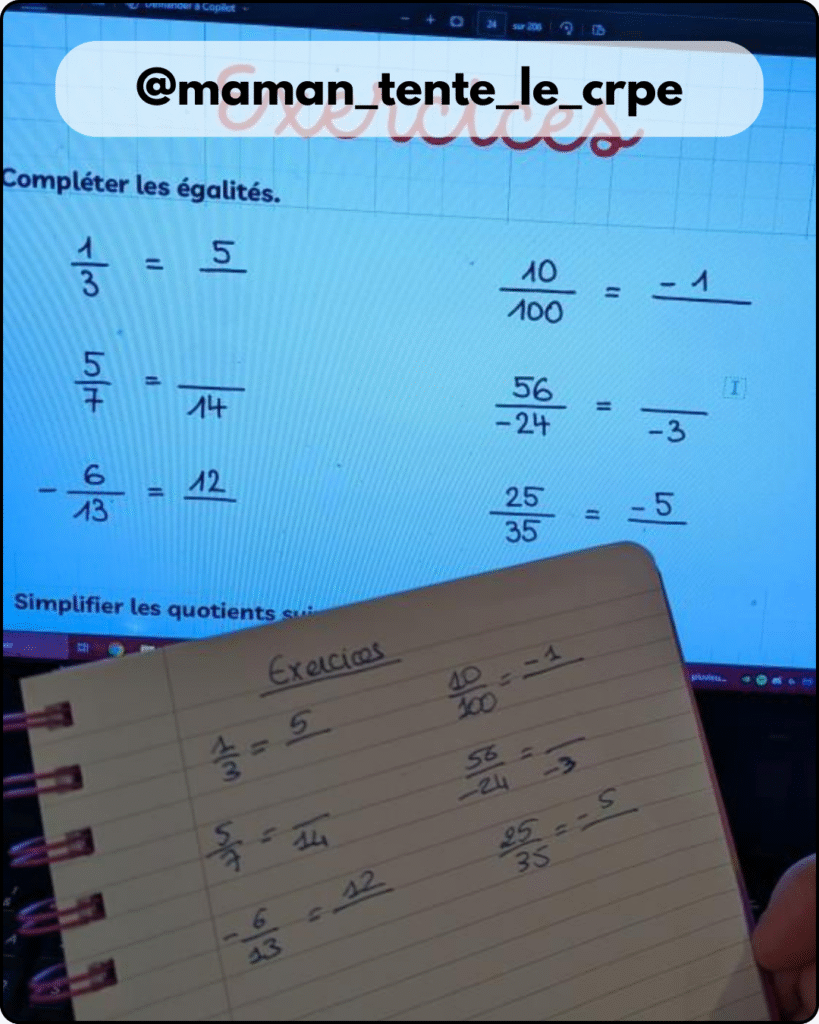 Demander à Copilot
- + 24 sur 206
@maman_tente_le_crpe
Exercices
Compléter les égalités.
1/3 = 5/
10/100 = -1/
5/7 = /14
56/-24 = /-3
-6/13 = 12/
25/35 = -5/
Simplifier les quotients
Exercices
1/3 = 5/
10/100 = -1/
5/7 = /14
56/-24 = /-3
-6/13 = 12/
25/35 = -5/